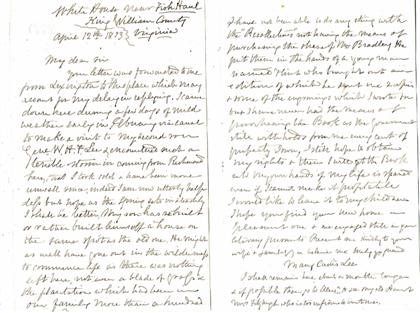 White House near Fish Haul
King William County
April 12th 1873 } Virginia
My dear Sir
Your letter was forwarded to me
from Lexington to this place which may
account for my delay in replying. I came
down here during a few days of mild
weather early in February on
to make a visit to my second son
Genl W. H. F. Lee & encountered such an
terrible storm in coming from Richmond
here, that I took cold & have been more
unwell since, indeed I am now utterly help
less but hope as the Spring sets in
I shall be better, My son has rebuilt
or rather built himself a house on
the same spot as the old one. He might
as well have gone out in the wilderness
to commence life as there was nothing
left here, not even a blade of grass &
the plantation which had been in
our family more than a hundred
I have not been able to do any thing with
the Recollections not having the means of
purchasing the of Mr Bradley. He
put them in the hands of a young man
named who brought out an
edition of which he sent me
none of the which I wrote
but I have never had the means of
purchasing the Book as the Government
still withholds from me every cent of
property I own, I still hope to obtain
my rights & then I will get the Book
out of your hands if my life is spared
even if I cannot make it profitable
I would like to leave it to my children
I hope you find your new home a
pleasant one & are engaged still in your
literary pursuits Present me kindly to your
wife & family & believe me truly yr friend
Mary Custis Lee
I shall remain here about a month longer